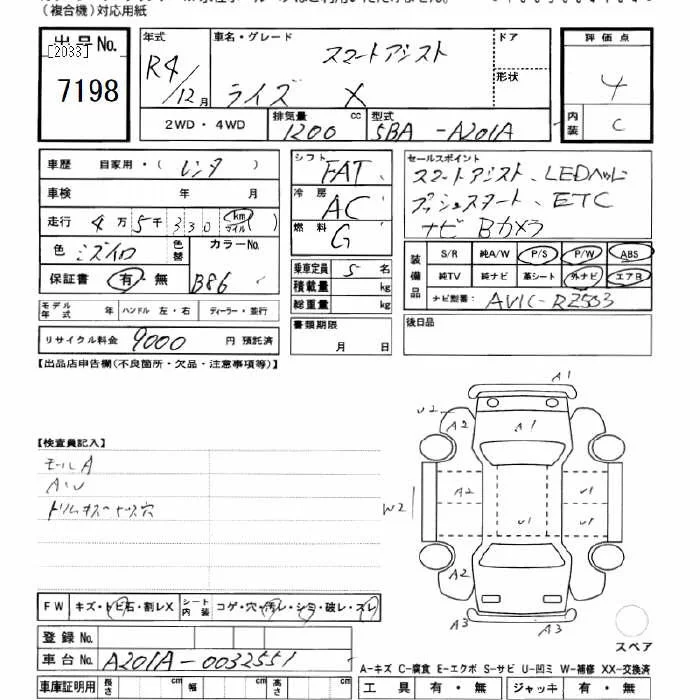 (複合機)対応用紙
出品No. [2033] 7198
年式 R4/12月
車名・グレード スマートアシスト ライズ X
ドア
形状
2WD・4WD
排気量 1200 cc
型式 5BA-A201A
評価点 4
内装 C
車歴 自家用・(レンタ)
車検 年 月
走行 4万5千330 km マイル
色 ミズイロ 色替 カラーNo. B86
保証書 有・無
モデル年式 年 ハンドル 左・右 ディーラー・並行
リサイクル料金 9000 円 預託済
シフト FAT
冷房 AC
燃料 G
乗車定員 5名
積載量 kg
総重量 kg
書類期限 月 日
セールスポイント
スマートアシスト、LEDヘッド
プッシュスタート、ETC
ナビ Bカメラ
装備品 S/R 純A/W P/S P/W ABS
純TV 純ナビ 革シート 外ナビ エアB
ナビ型番: AVIC-RZ503
後日品
【出品店申告欄(不良箇所・欠品・注意事項等)】
【検査員記入】
モールA
A・U
A1
U2 A2 A1
W2 A2 U1 U1 U1
A2 A2
A3 A3
スペア
FW キズ・トビ石・割レX シート内装 コゲ・穴・汚レ・シミ・破レ・スレ
登録No.
車台No. A201A-0032551
車庫証明用 長さ cm 幅 cm 高さ cm
A-キズ C-腐食 E-エクボ S-サビ U-凹ミ W-補修 XX-交換済
工具 有・無 ジャッキ 有・無